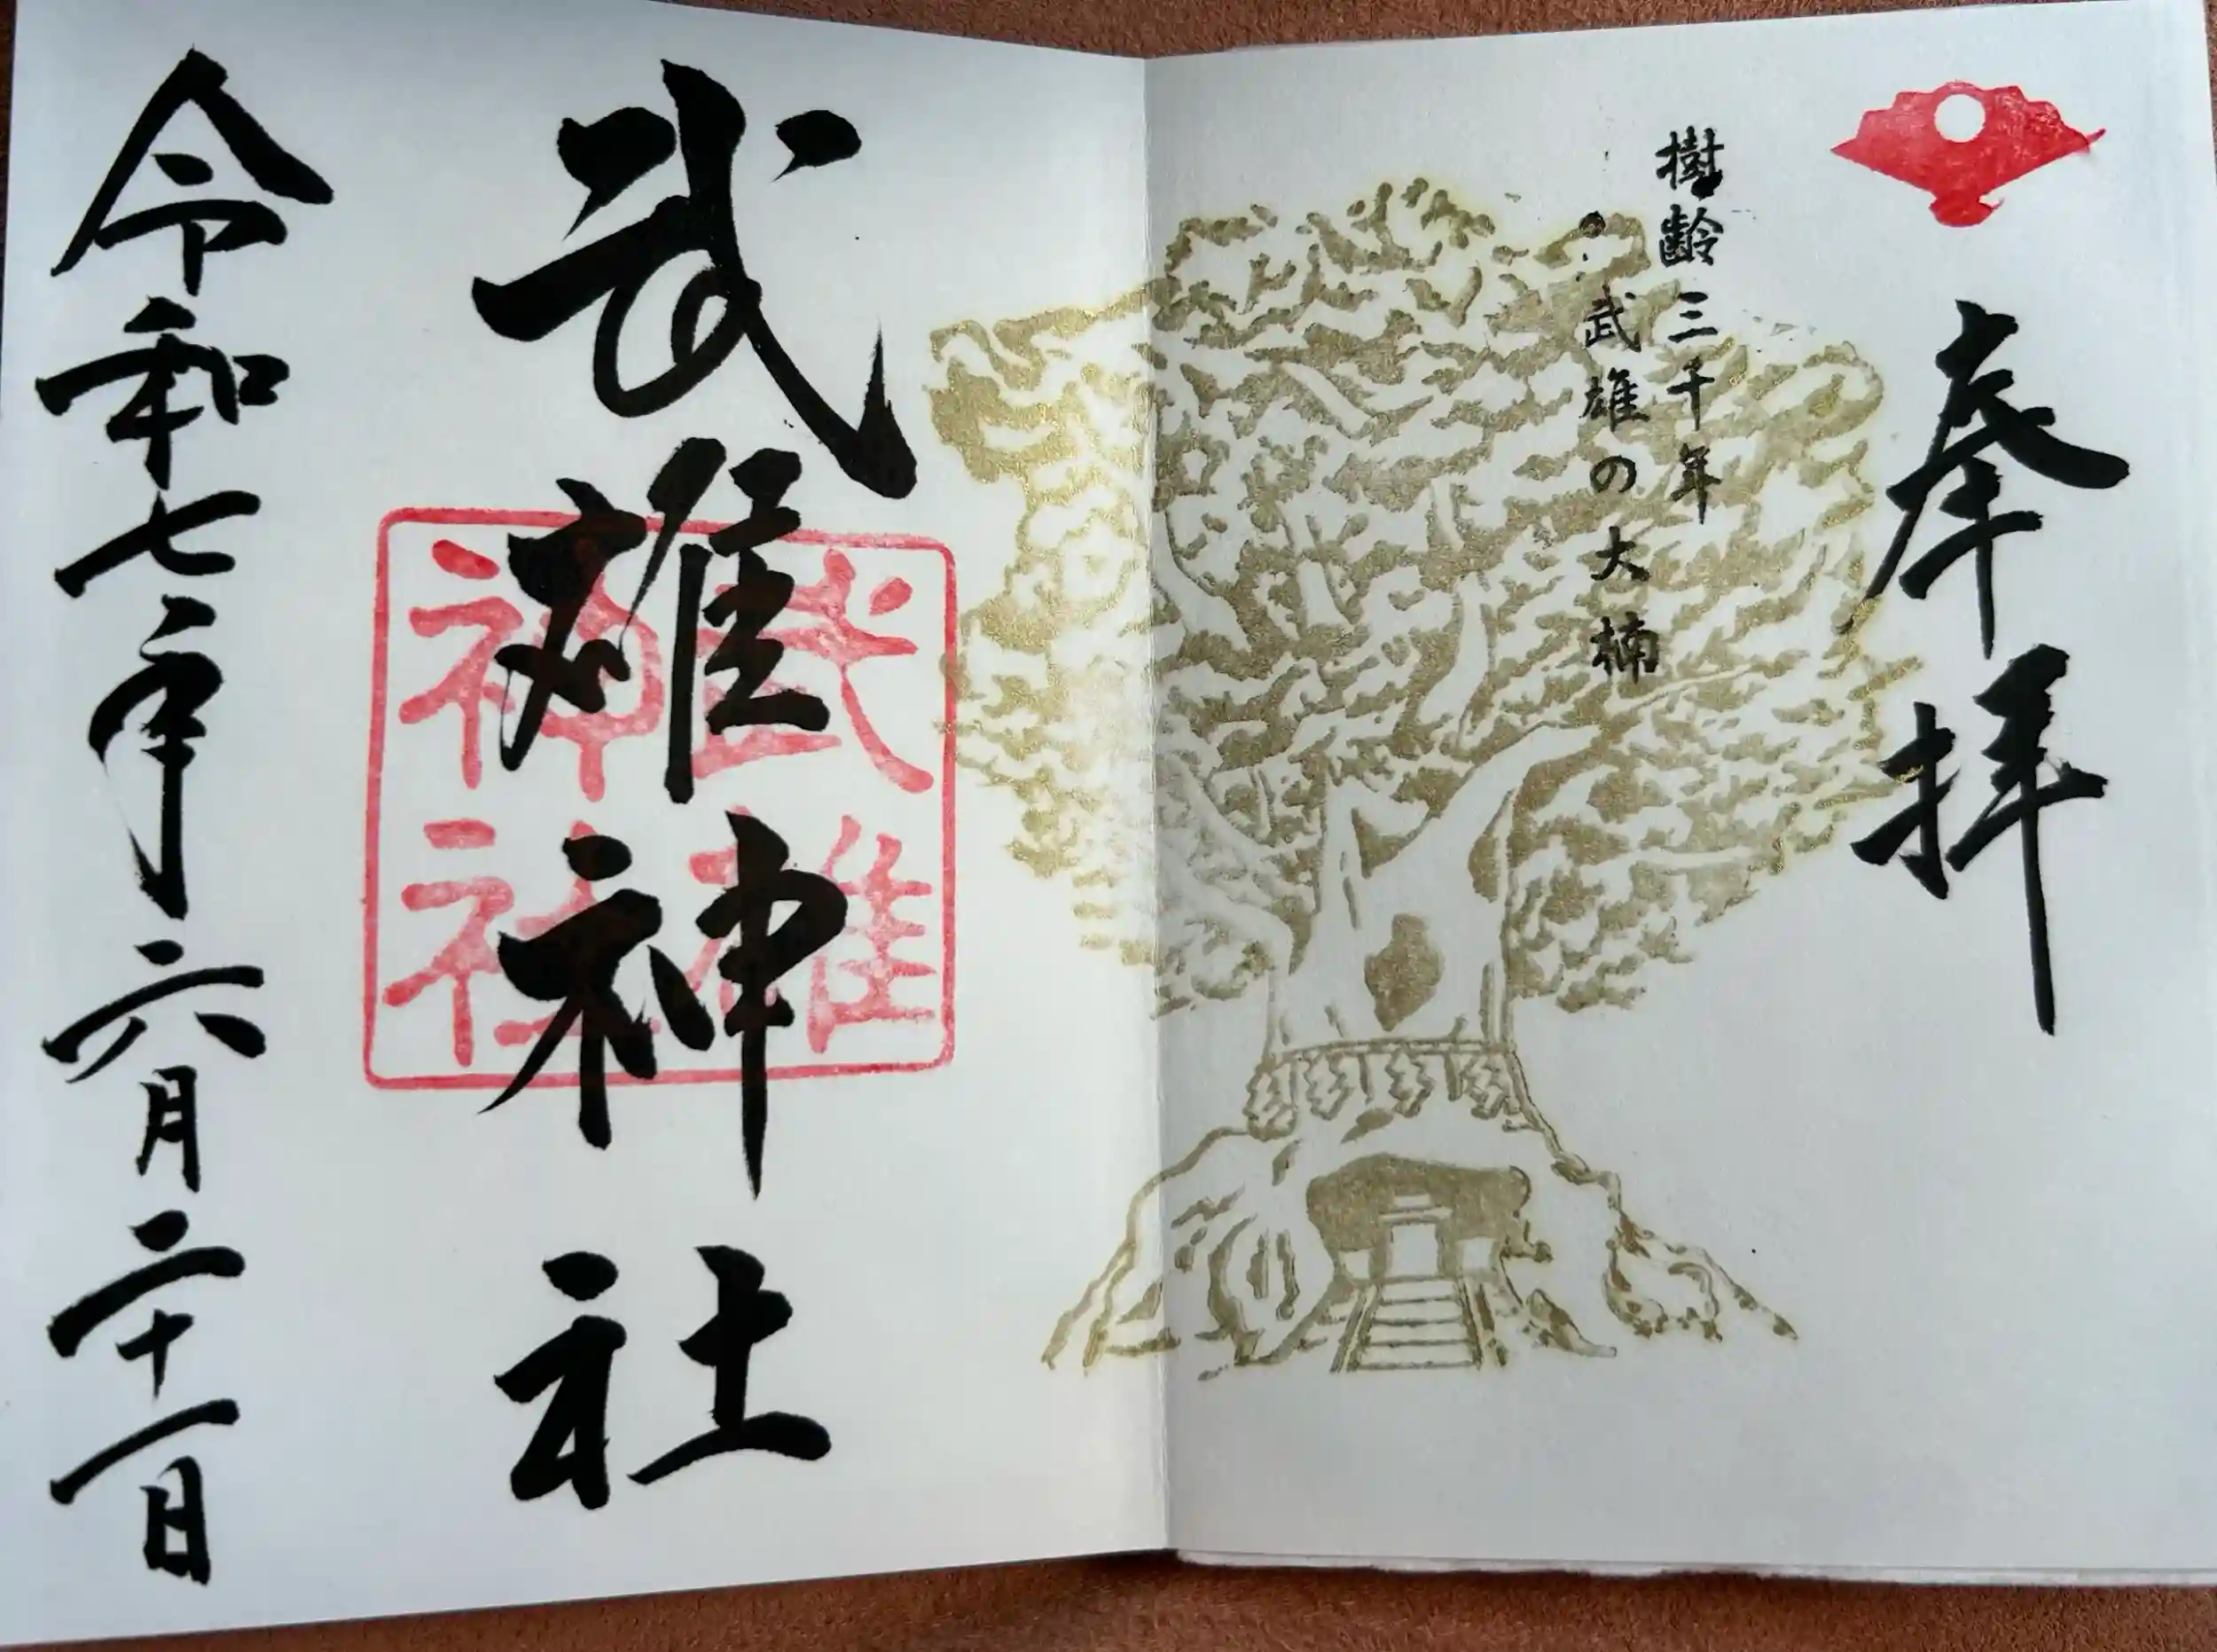 奉拝
樹齢三千年
武雄の大楠
武雄神社
武雄神社
令和七年六月二十一日